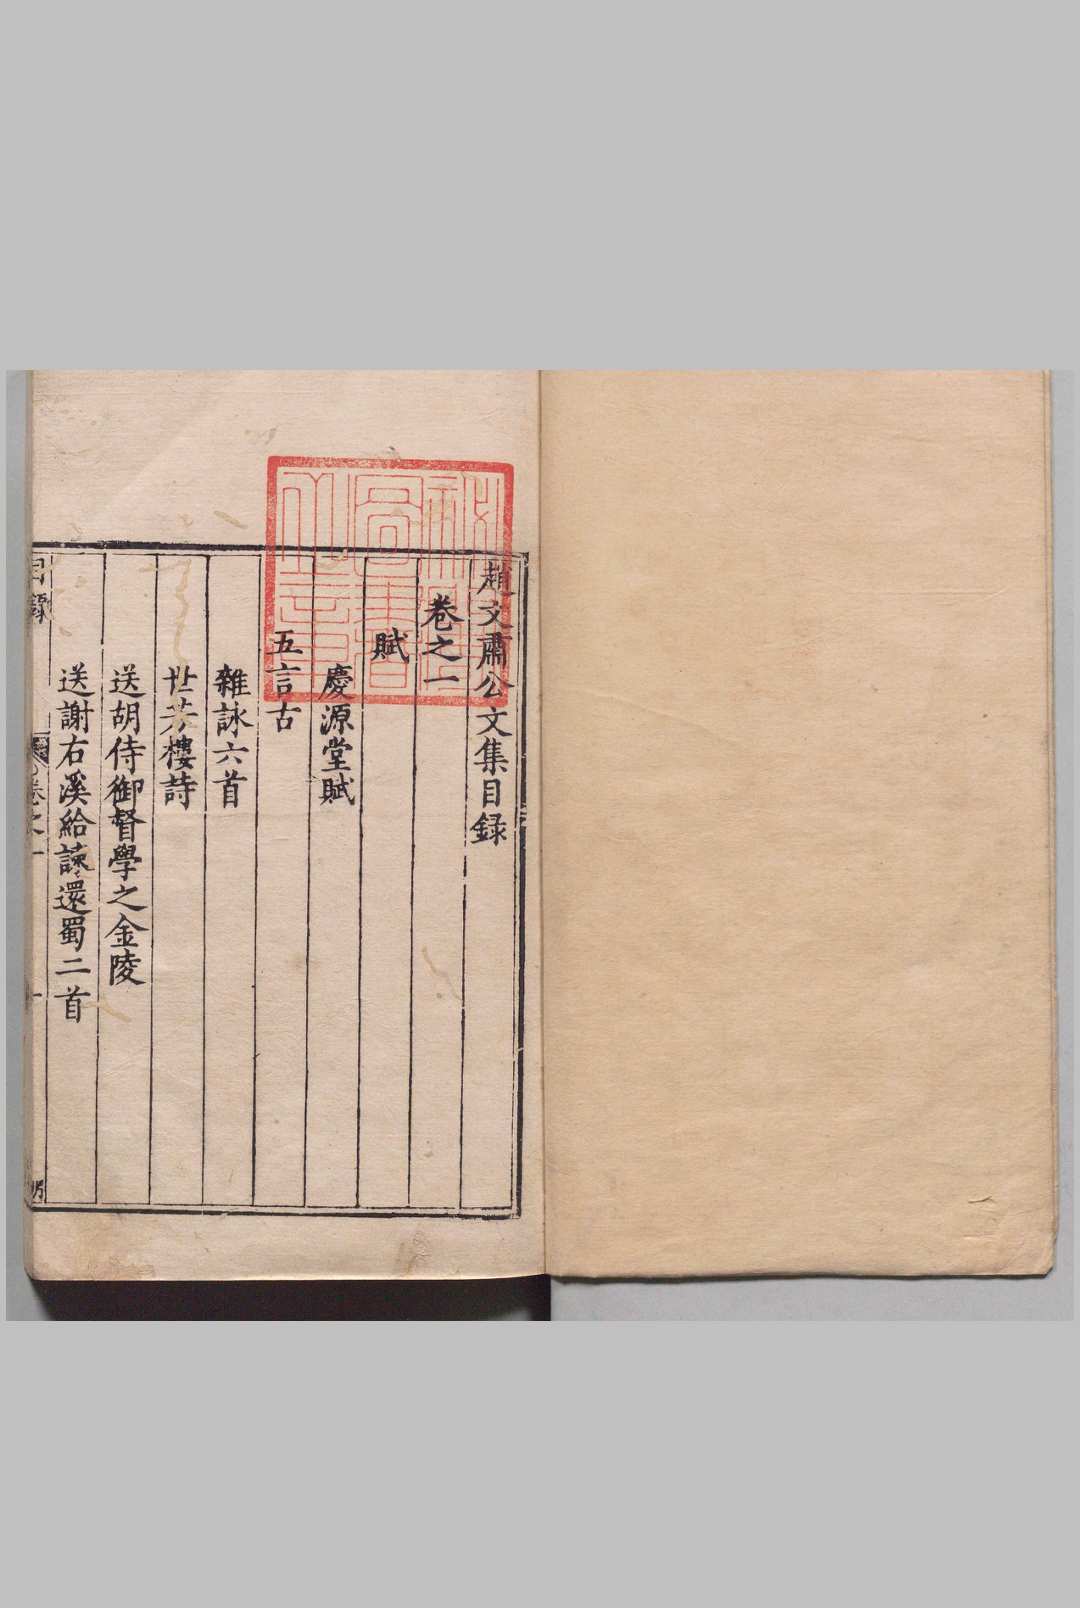 趙文肅公文集目録
卷之一
賦
慶源堂賦
五言古
雜詠六首
世芳樓詩
送胡侍御督學之金陵
送謝右溪給諫還蜀二首
目録
卷之一
一